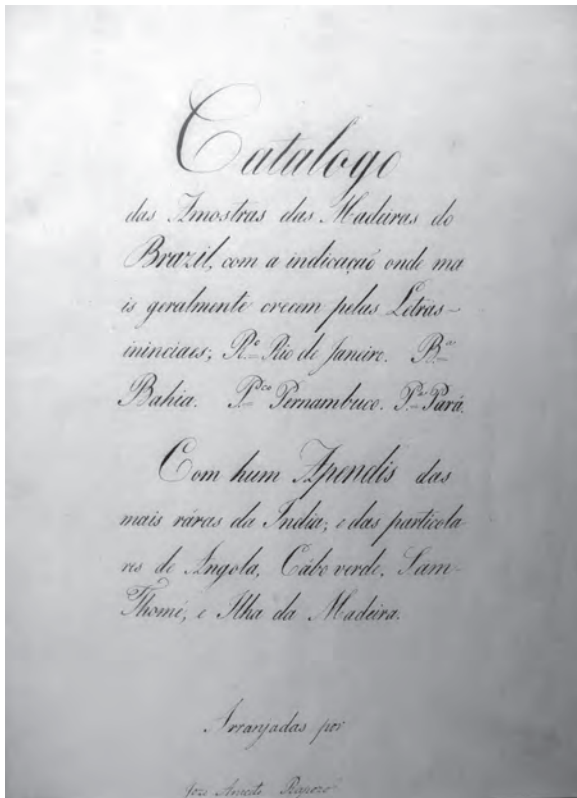 Catalogo
das Amostras das Madeiras do
Brazil, com a indicaçaõ onde ma
is geralmente crecem pelas Letras-
ininciaes; R.º Rio de Janeiro. B.ª
Bahia. P.co Pernambuco. P.á Pará.
Com hum Apendis das
mais ráras da India; e das particola
res de Angola, Cabo verde, Sam-
Thomé, e Ilha da Madeira.
Arranjadas por
Joze Aniceto Rapozo